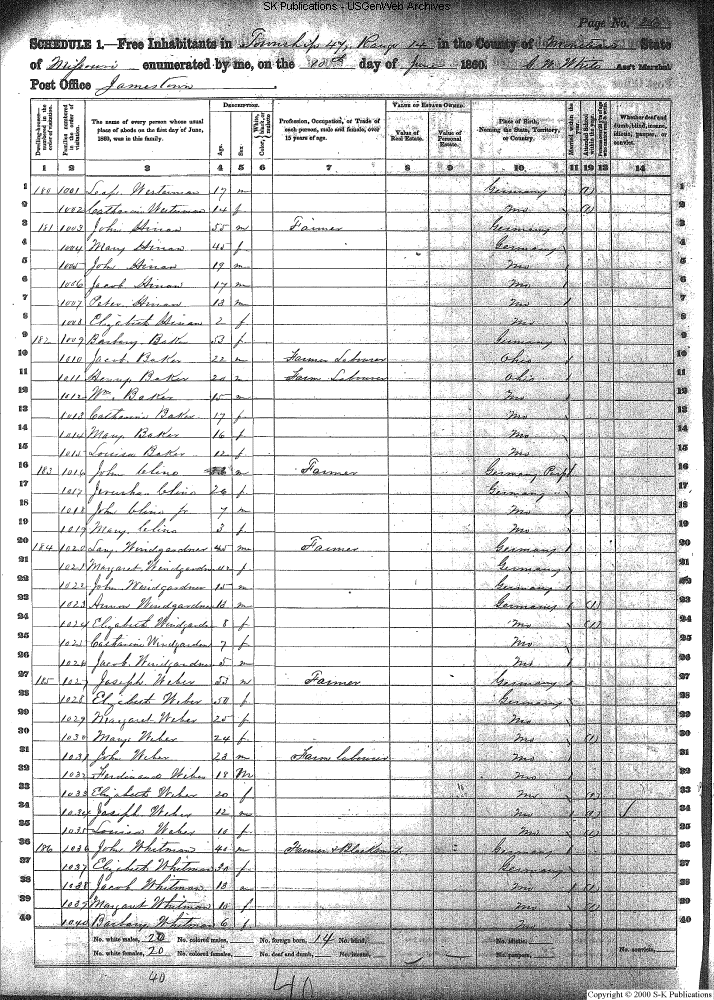 SK Publications - USGenWeb Archives
Page No.
SCHEDULE 1.—Free Inhabitants in Township 47, Range 14 in the County of Moniteau State
of Missouri enumerated by me, on the 10th day of June 1860. White Ass't Marshal
Post Office Jamestown
DESCRIPTION. VALUE OF ESTATE OWNED.
Dwelling-houses— numbered in the order of visitation.
Families numbered in the order of visitation.
The name of every person whose usual place of abode on the first day of June, 1860, was in this family.
Age. Sex. Color, White, black, or mulatto
Profession, Occupation, or Trade of each person, male and female, over 15 years of age.
Value of Real Estate. Value of Personal Estate.
Place of Birth, Naming the State, Territory, or Country.
Married within the year. Attended School within the year.
Whether deaf and dumb, blind, insane, idiotic, pauper, or convict.
1 2 3 4 5 6 7 8 9 10 11 12 13 14
1 180 1001 Westerman 17 m Germany (1) 1
2 1002 Catharine Westerman 14 f Mo (1) 2
3 181 1003 John Hinan 55 m Farmer Germany 3
4 1004 Mary Hinan 45 f Germany 4
5 1005 John Hinan 19 m Mo 5
6 1006 Jacob Hinan 17 m Mo 6
7 1007 Peter Hinan 13 m Mo 7
8 1008 Elizabeth Hinan 2 f Mo 8
9 182 1009 Barbary Baker 53 f Germany 9
10 1010 Jacob Baker 22 m Farmer Labourer Ohio 10
11 1011 Henry Baker 20 m Farm Labourer Ohio 11
12 1012 Wm Baker 15 m Mo 12
13 1013 Catharine Baker 17 f Mo 13
14 1014 Mary Baker 16 f Mo 14
15 1015 Louisa Baker 12 f Mo 15
16 183 1016 John Cline m Farmer Germany 16
17 1017 Jerusha Cline 26 f Germany 17
18 1018 John Cline jr 7 m Mo 18
19 1019 Mary Cline 3 f Mo 19
20 184 1020 Windgardner 45 m Farmer Germany 20
21 1021 Margaret Windgardner 42 f Germany 21
22 1022 John Windgardner 15 m Germany 22
23 1023 Windgardner m Germany (1) 23
24 1024 Elizabeth Windgarden 8 f Mo (1) 24
25 1025 Catharine Windgarden 7 f Mo 25
26 1026 Jacob Windgardner 5 m Mo 26
27 185 1027 Joseph Weber 53 m Farmer Germany 27
28 1028 Elizabeth Weber 50 f Germany 28
29 1029 Margaret Weber 25 f Mo 29
30 1030 Mary Weber 24 f Mo (1) 30
31 1031 John Weber 23 m Farm labourer Mo 31
32 1032 Ferdinand Weber 18 M Mo 32
33 1033 Elizabeth Weber 20 f Mo (1) 33
34 1034 Joseph Weber 12 m Mo (1) 34
35 1035 Louisa Weber 10 f Mo (1) 35
36 186 1036 John Whitman 40 m Farmer & Blacksmith Germany 36
37 1037 Elizabeth Whitman 30 f Germany 37
38 1038 Jacob Whitman 13 m Mo (1) 38
39 1039 Margaret Whitman 10 f Mo (1) 39
40 1040 Barbary Whitman 6 f Mo 40
No. white males, 20 No. colored males, No. foreign born, 14 No. blind, No. idiotic,
No. white females, 20 No. colored females, No. deaf and dumb, No. insane, No. paupers, No. convicts,
40 40
Copyright © 2000 S-K Publications